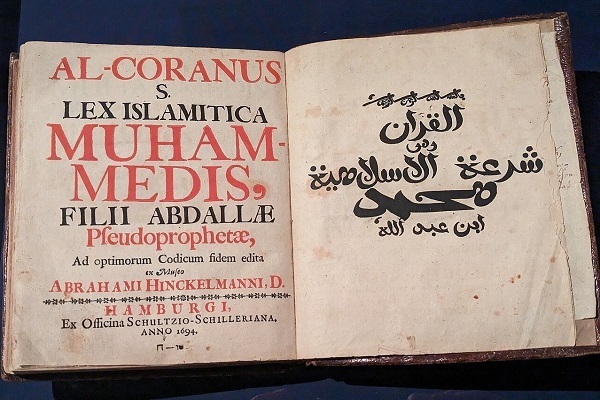 AL-CORANUS
S.
LEX ISLAMITICA
MUHAM-
MEDIS,
FILII ABDALLÆ
Pſeudoprophetæ,
Ad optimorum Codicum fidem edita
ex Muſeo
ABRAHAMI HINCKELMANNI, D.
HAMBURGI,
Ex Officina SCHULTZIO-SCHILLERIANA.
ANNO 1694.
القران
وهو
شرعة الاسلامية
محمد
ابن عبد الله